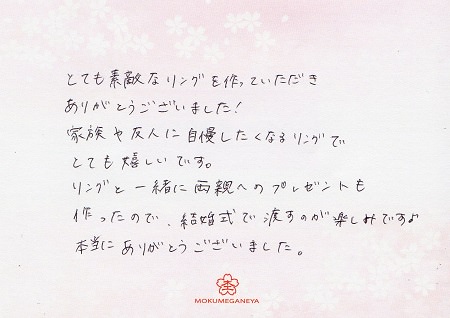 とても素敵なリングを作っていただき
ありがとうございました!
家族や友人に自慢したくなるリングで
とても嬉しいです。
リングと一緒に両親へのプレゼントも
作ったので、結婚式で渡すのが楽しみです♪
本当にありがとうございました。
杢
MOKUMEGANEYA